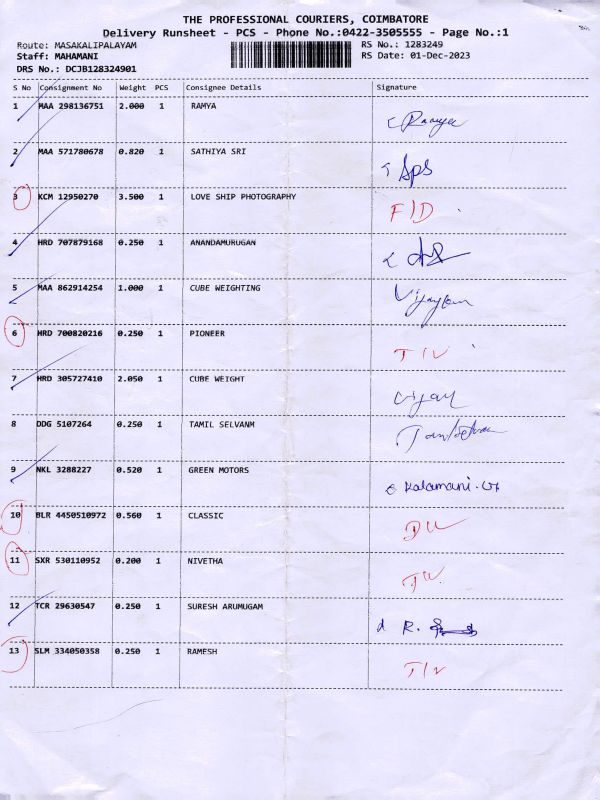 THE PROFESSIONAL COURIERS, COIMBATORE
Delivery Runsheet - PCS - Phone No.:0422-3505555 - Page No.:1
Route: MASAKALIPALAYAM RS No.: 1283249
Staff: MAHAMANI RS Date: 01-Dec-2023
DRS No.: DCJB128324901
S No Consignment No Weight PCS Consignee Details Signature
1 MAA 298136751 2.000 1 RAMYA Ramya
2 MAA 571780678 0.820 1 SATHIYA SRI Sps
3 KCM 12950270 3.500 1 LOVE SHIP PHOTOGRAPHY F/D
4 HRD 707879168 0.250 1 ANANDAMURUGAN
5 MAA 862914254 1.000 1 CUBE WEIGHTING
6 HRD 700820216 0.250 1 PIONEER T/V
7 HRD 305727410 2.050 1 CUBE WEIGHT Vijay
8 DDG 5107264 0.250 1 TAMIL SELVANM
9 NKL 3288227 0.520 1 GREEN MOTORS Kalamani
10 BLR 4450510972 0.560 1 CLASSIC
11 SXR 530110952 0.200 1 NIVETHA
12 TCR 29630547 0.250 1 SURESH ARUMUGAM R.
13 SLM 334050358 0.250 1 RAMESH T/V